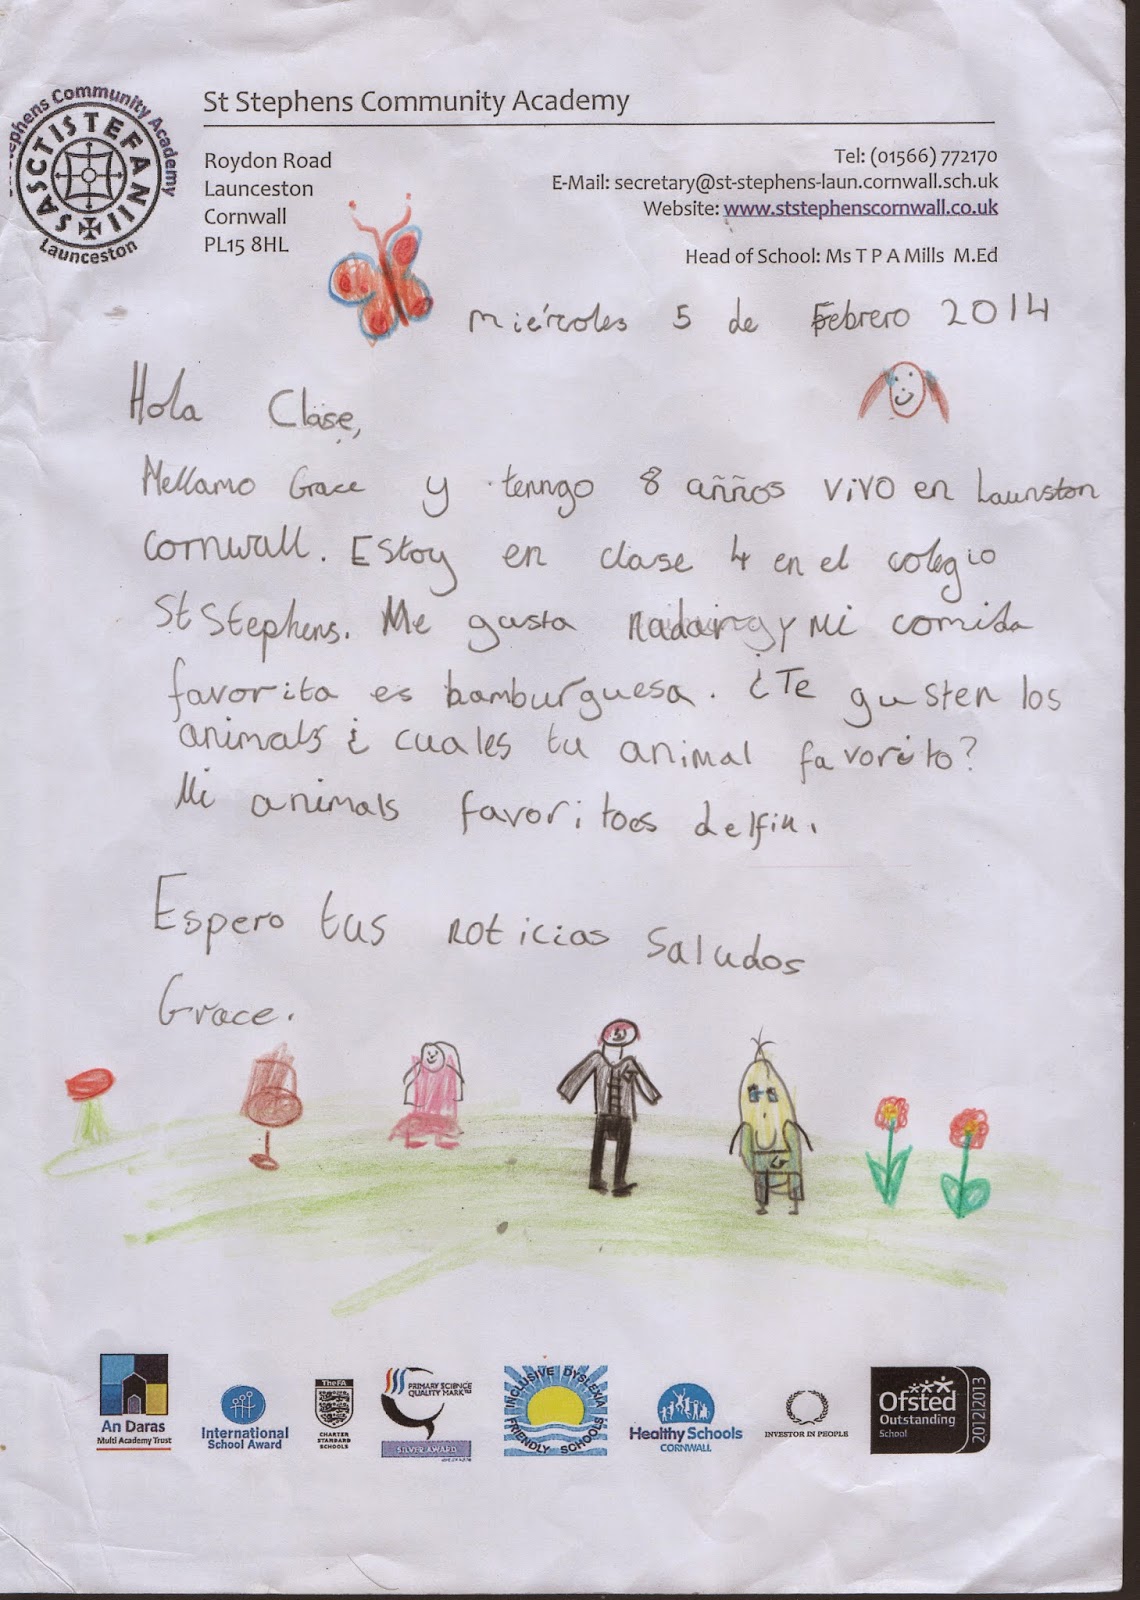 St Stephens Community Academy
St Stephens Community Academy
SASCTISTEFANII
Launceston
Roydon Road
Launceston
Cornwall
PL15 8HL
Tel: (01566) 772170
E-Mail: secretary@st-stephens-laun.cornwall.sch.uk
Website: www.ststephenscornwall.co.uk
Head of School: Ms T P A Mills M.Ed
Miércoles 5 de Febrero 2014
Hola Clase,
Mellamo Grace y tenngo 8 añños vivo en Launston
cornwall. Estoy en clase 4 en el colegio
St Stephens. Me gusta y Mi comida
favorita es bamburguesa. ¿Te gusten los
animals ¿ cuales tu animal favorito?
Mi animals favoritoes delfin.
Espero tus noticias Saludos
Grace.
An Daras
Multi Academy Trust
International
School Award
The FA
CHARTER
STANDARD
SCHOOLS
PRIMARY SCIENCE
QUALITY MARK
SILVER AWARD
INCLUSIVE DYSLEXIA
FRIENDLY SCHOOLS
Healthy Schools
CORNWALL
INVESTOR IN PEOPLE
Ofsted
Outstanding
School
2012|2013